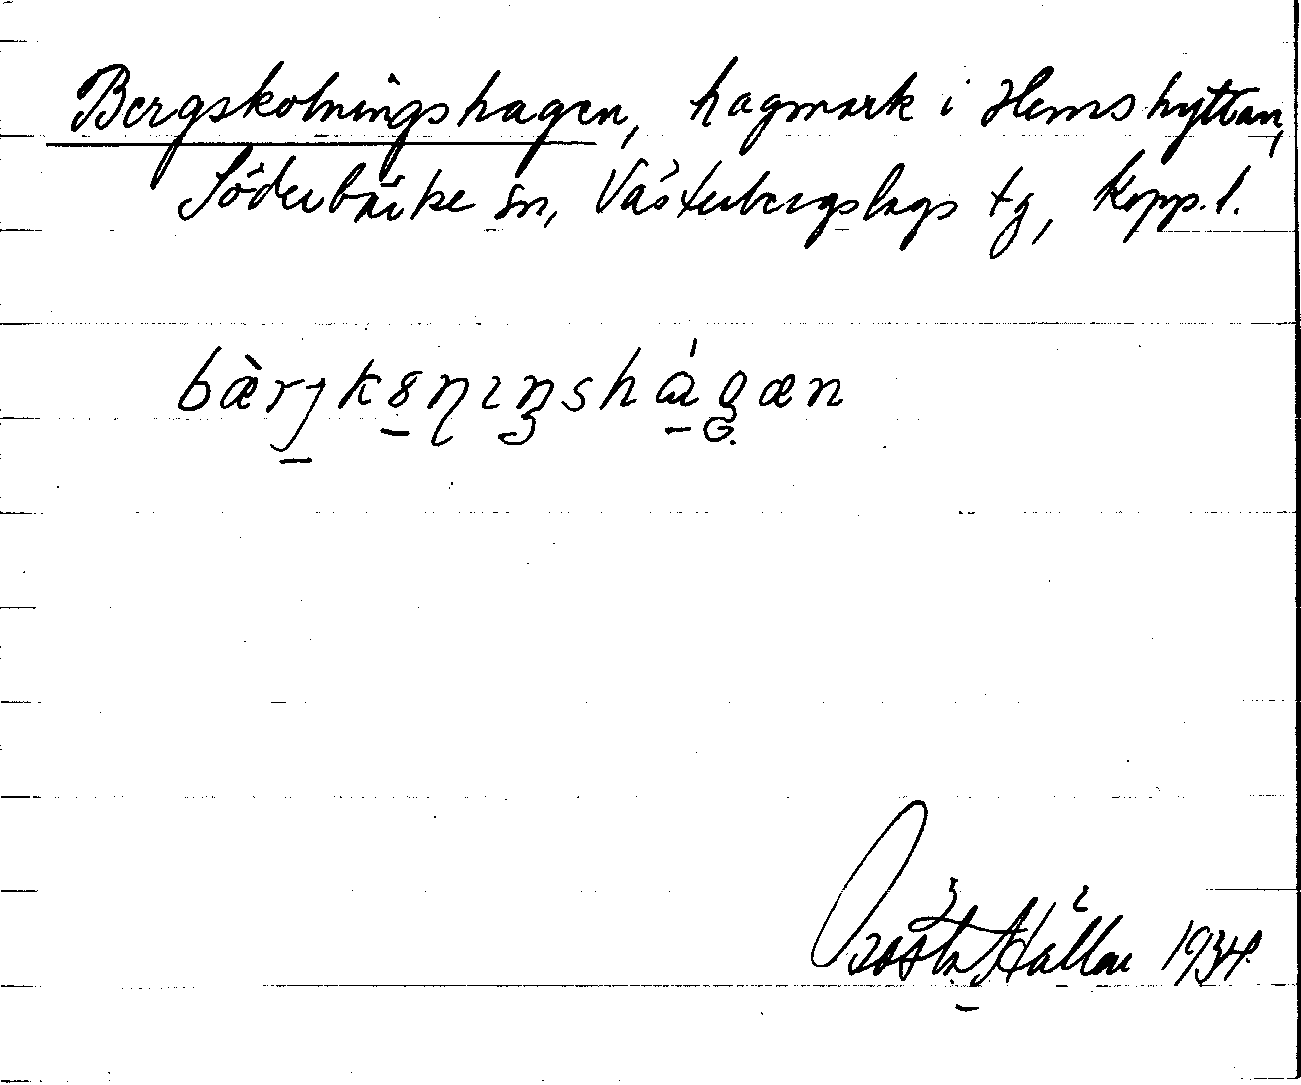 Bergskolningshagen, hagmark i Hemshyttan,
Söderbärke sn, Västerbergslags tg, Kopp. l.
bæ̀rȷk8ɳıŋshágæn
Gösta Hällen 1934.